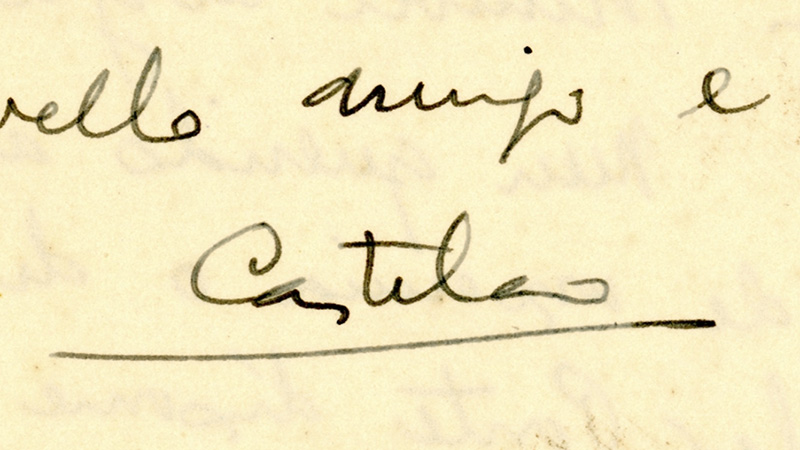 vello amigo e
Castelao